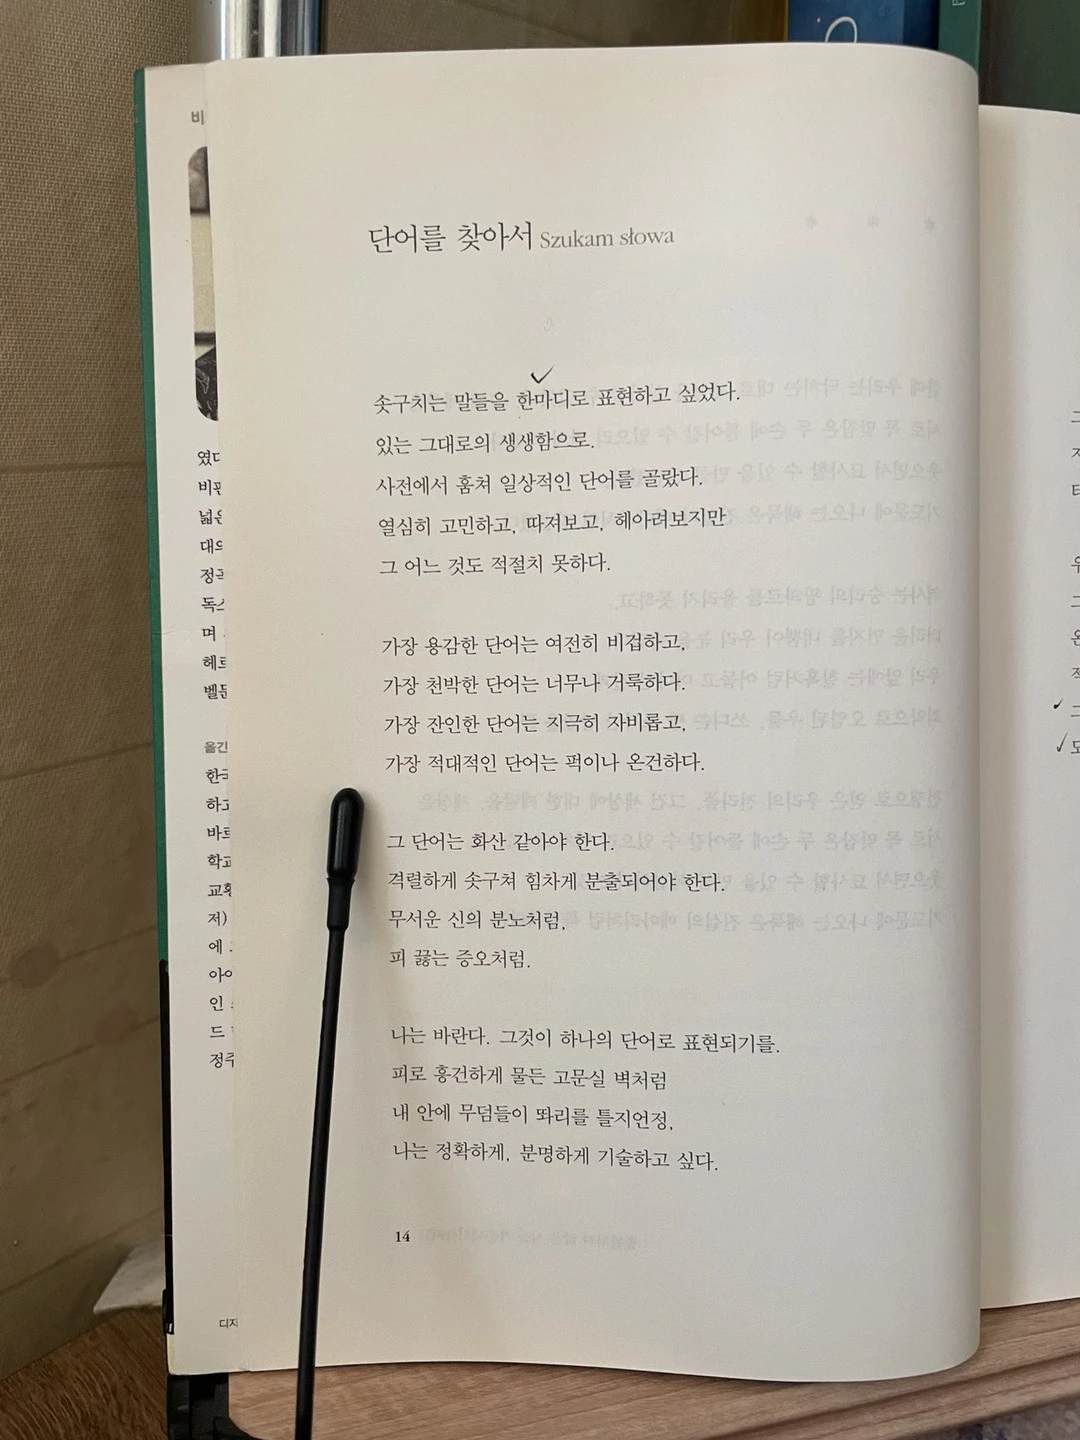 단어를 찾아서 Szukam słowa
솟구치는 말들을 한마디로 표현하고 싶었다.
있는 그대로의 생생함으로.
사전에서 훔쳐 일상적인 단어를 골랐다.
열심히 고민하고, 따져보고, 헤아려보지만
그 어느 것도 적절치 못하다.
가장 용감한 단어는 여전히 비겁하고,
가장 천박한 단어는 너무나 거룩하다.
가장 잔인한 단어는 지극히 자비롭고,
가장 적대적인 단어는 퍽이나 온건하다.
그 단어는 화산 같아야 한다.
격렬하게 솟구쳐 힘차게 분출되어야 한다.
무서운 신의 분노처럼,
피 끓는 증오처럼.
나는 바란다. 그것이 하나의 단어로 표현되기를.
피로 흥건하게 물든 고문실 벽처럼
내 안에 무덤들이 똬리를 틀지언정,
나는 정확하게, 분명하게 기술하고 싶다.
14